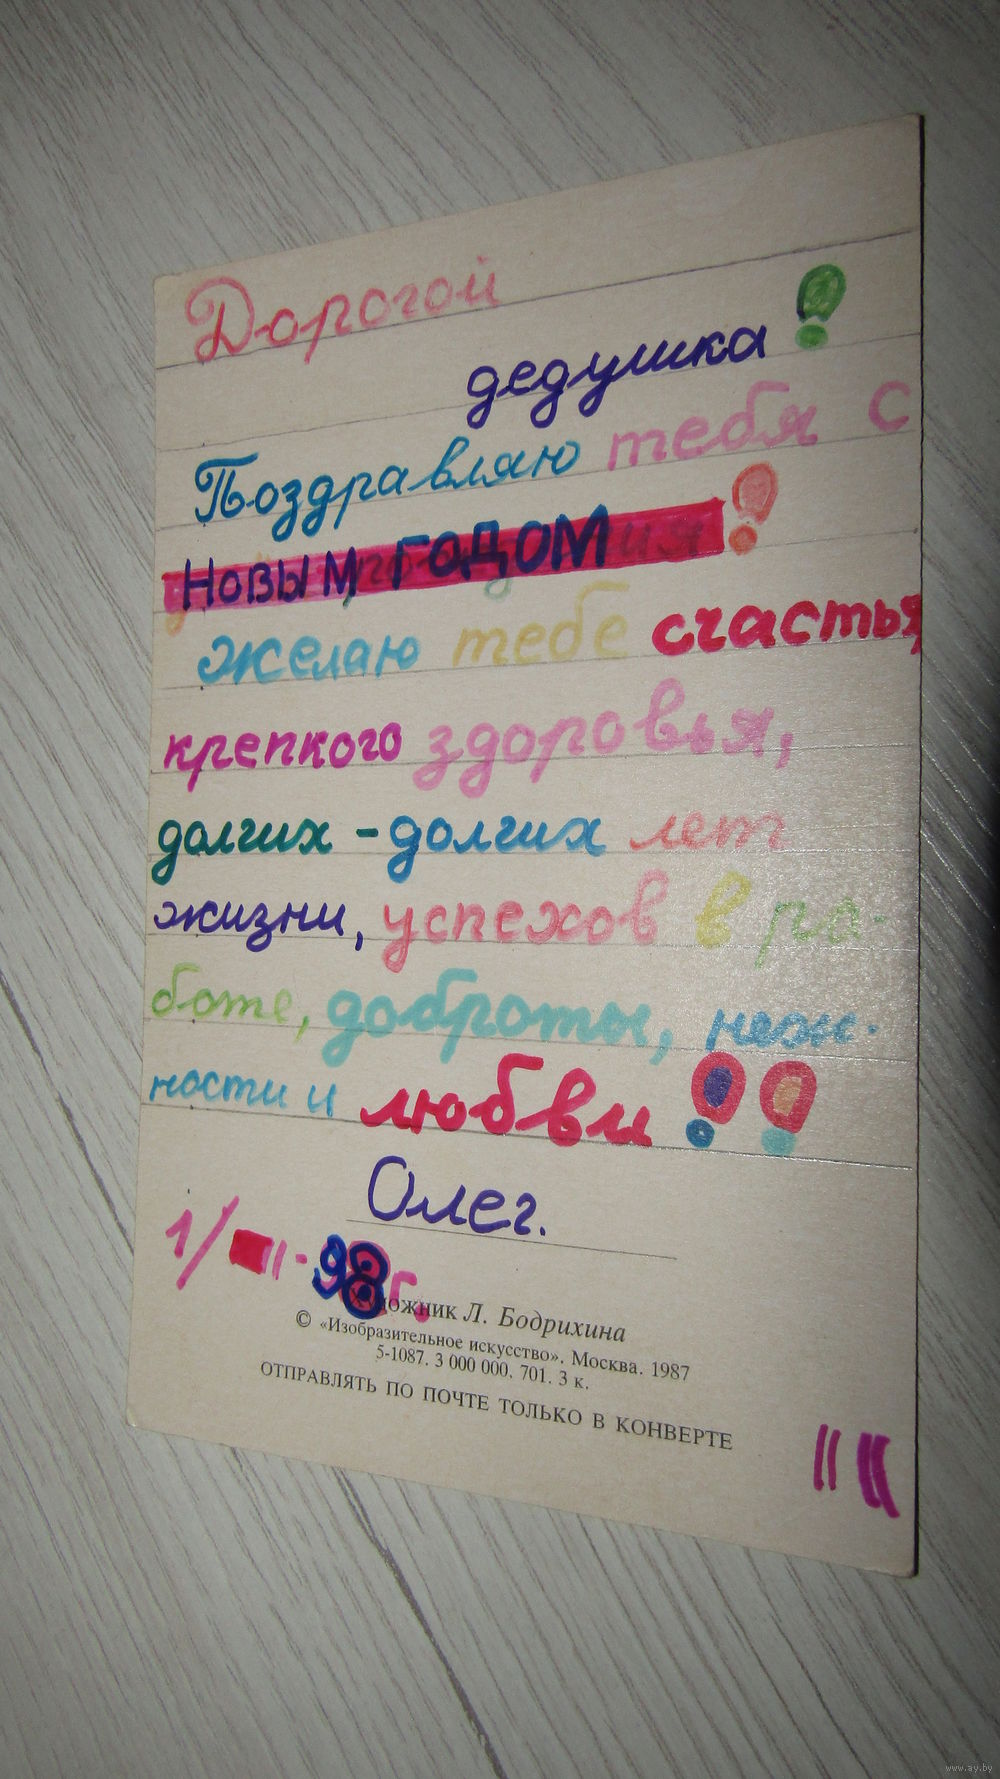 Дорогой
дедушка!
Поздравляю тебя с
Новым годом!
желаю тебе счастья
крепкого здоровья,
долгих - долгих лет
жизни, успехов в ра-
боте, доброты, неж-
ности и любви!!
Олег.
1/ II - 98 г.
Художник Л. Бодрихина
© «Изобразительное искусство». Москва. 1987
5-1087. 3 000 000. 701. 3 к.
ОТПРАВЛЯТЬ ПО ПОЧТЕ ТОЛЬКО В КОНВЕРТЕ
www.ay.by